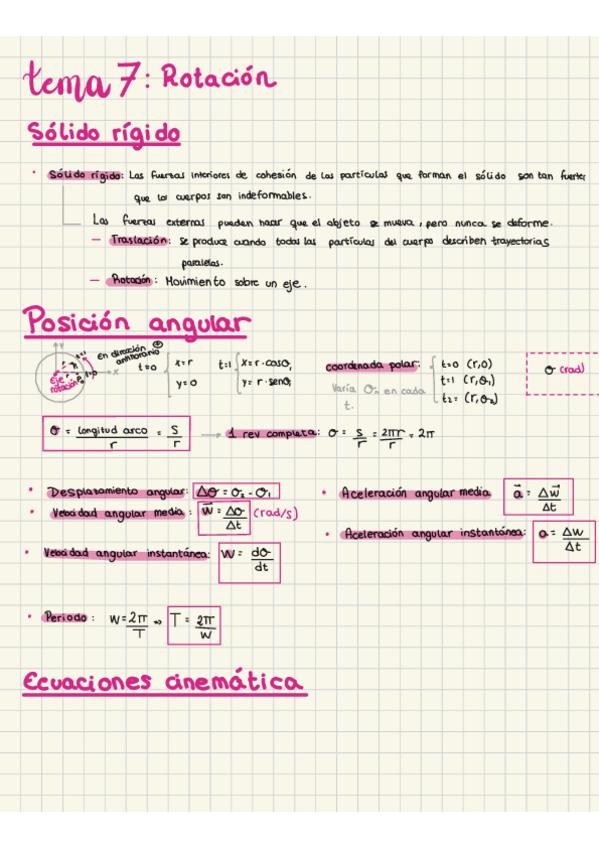 tema 7: Rotación
Sólido rígido
• Sólido rígido: Las fuerzas interiores de cohesión de las partículas que forman el sólido son tan fuertes
que los cuerpos son indeformables.
Las fuerzas externas pueden hacer que el objeto se mueva, pero nunca se deforme.
— Traslación: se produce cuando todas las partículas del cuerpo describen trayectorias
paralelas.
— Rotación: Movimiento sobre un eje.
Posición angular
Y
X
Eje rotación
t=1
t=0
en dirección antihorario ⊕
t=0 { x=r
y=0
t=1 { x=r·cosθ₁
y=r·senθ₁
coordenada polar: { t=0 (r,0)
t=1 (r,θ₁)
t₂= (r,θ₂)
Varía θ en cada
t.
θ (rad)
θ = longitud arco / r = S / r → 1 rev completa: θ = S / r = 2πr / r = 2π
• Desplazamiento angular: Δθ = θ₂ - θ₁
• Velocidad angular media: w⃗ = Δθ / Δt (rad/s)
• Velocidad angular instantánea: w = dθ / dt
• Aceleración angular media a⃗ = Δw⃗ / Δt
• Aceleración angular instantánea: a = Δw / Δt
• Periodo: w = 2π / T ⇒ T = 2π / w
Ecuaciones cinemática